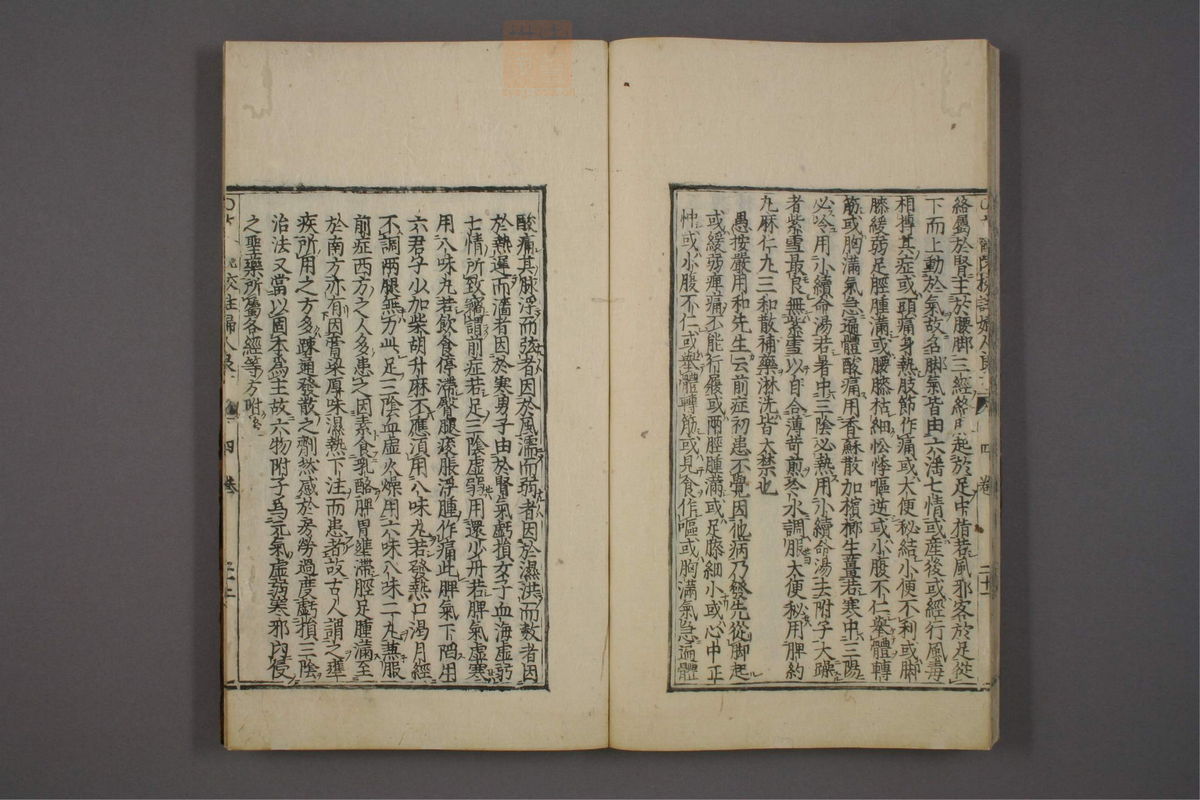 絡屬於腎主於腰脚三經絡 起於足中指若風邪客於足從
下而上動於氣故名脚氣皆由六淫七情或產後或經行風毒
相搏其症或頭痛身熱肢節作痛或大便秘結小便不利或脚
膝緩弱足脛腫滿或腰膝枯細忪悸嘔逆或小腹不仁舉體轉
筋或胸滿氣急遍體酸痛用香蘇散加檳榔生薑若寒中三陽
必冷用小續命湯若暑中三陰必熱用小續命湯去附子大躁
者紫雪最良無紫雪以百合薄苛煎冷水調服大便秘用脾約
丸麻仁丸三和散補藥淋洗皆大禁也
愚按嚴用和先生云前症初患不覺因他病乃發先從脚起
或緩弱痺痛不能行履或兩脛腫滿或足膝細小或心中正
忡或小腹不仁或舉體轉筋或見食作嘔或胸滿氣急遍體
四 卷
酸痛其脉浮而弦者因於風濡而弱者因於濕洪而數者因
於熱遲而濇者因於寒男子由於腎氣虧損女子血海虛弱
七情所致竊謂前症若足三陰虛弱用還少丹若脾氣虛寒
用八味丸若飲食停滯臀腿痠脹浮腫作痛此脾氣下陷用
六君子少加柴胡升麻不應須用八味丸若發熱口渴月經
不調兩腿無力此足三陰血虛火燥用六味八味二丸兼服
前症西方之人多患之因素食乳酪脾胃壅滯脛足腫滿至
於南方亦有因膏粱厚味濕熱下注而患者故古人謂之壅
疾所用之方多踈通發散之劑然感於房勞過度虧損三陰
治法又當以固本爲主故六物附子爲元氣虛弱寒邪內侵
之聖藥所屬各經等方附後
校註婦人良
四 卷